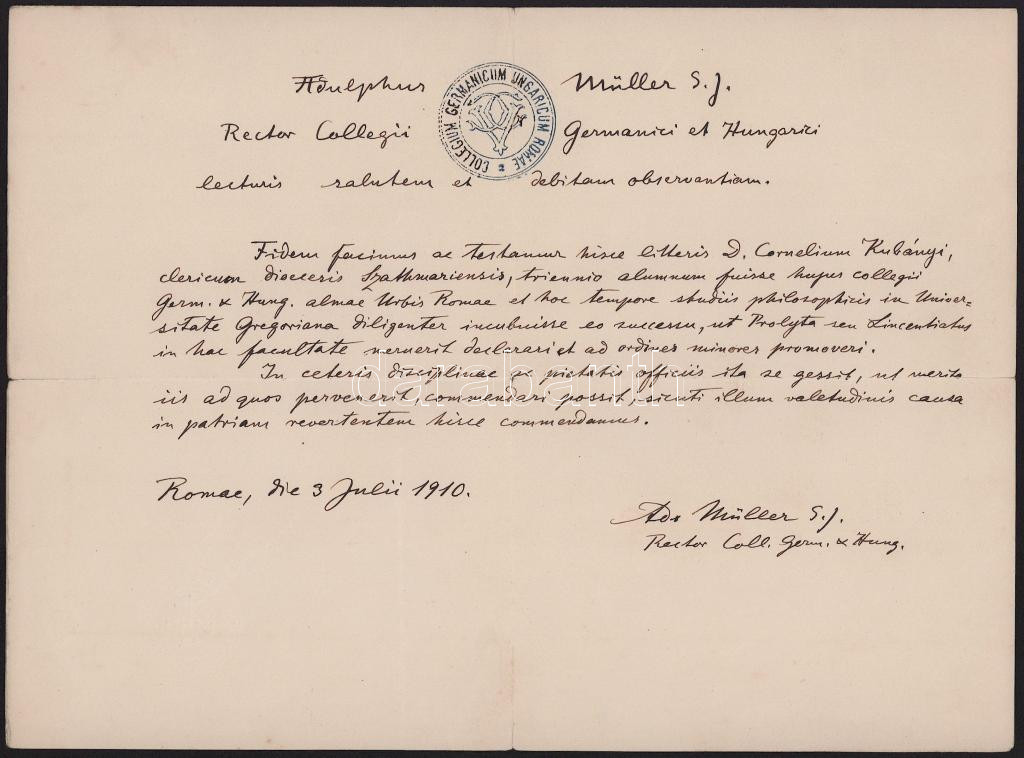 Adulphus Müller S. J.
COLLEGIUM GERMANICUM UNGARICUM ROMAE
Rector Collegii Germanici et Hungarici
lecturis salutem et debitam observantiam.
Fidem facimus ac testamur hisce litteris D. Cornelium Kubányi,
clericum dioecesis Szathmariensis, triennio alumnum fuisse hujus collegii
Germ. & Hung. almae Urbis Romae et hoc tempore studiis philosophicis in Univer=
sitate Gregoriana diligenter incubuisse eo successu, ut Prolyta seu Lincentiatus
in hac facultate meruerit declarari et ad ordines minores promoveri.
In ceteris disciplinae ac pietatis officiis ita se gessit, ut merito
iis ad quos pervenerit, commendari possit, sicuti illum valetudinis causa
in patriam revertentem hisce commendamus.
Romae, die 3 Julii 1910.
Ad. Müller S. J.
Rector Coll. Germ. & Hung.
darabanth